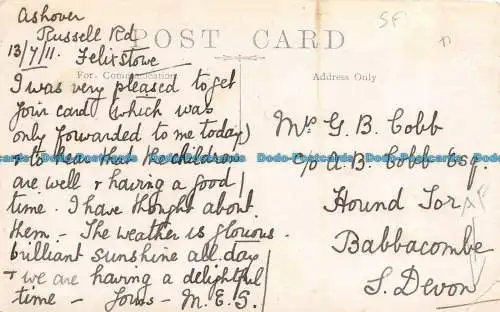 Ashover
Russell Rd
13/7/11. Felixstowe
POST CARD
For Communication
Address Only
I was very pleased to get
your card (which was
only forwarded to me today)
+ to hear that the children
are well + having a good
time. I have thought about
them - The weather is glorious.
brilliant sunshine all day
+ we are having a delightful
time - Yours - M.E.S.
Mrs G. B. Cobb
c/o A. B. Cobb Esq.
Hound Tor
Babbacombe
S. Devon
Dodo-Postcards.com